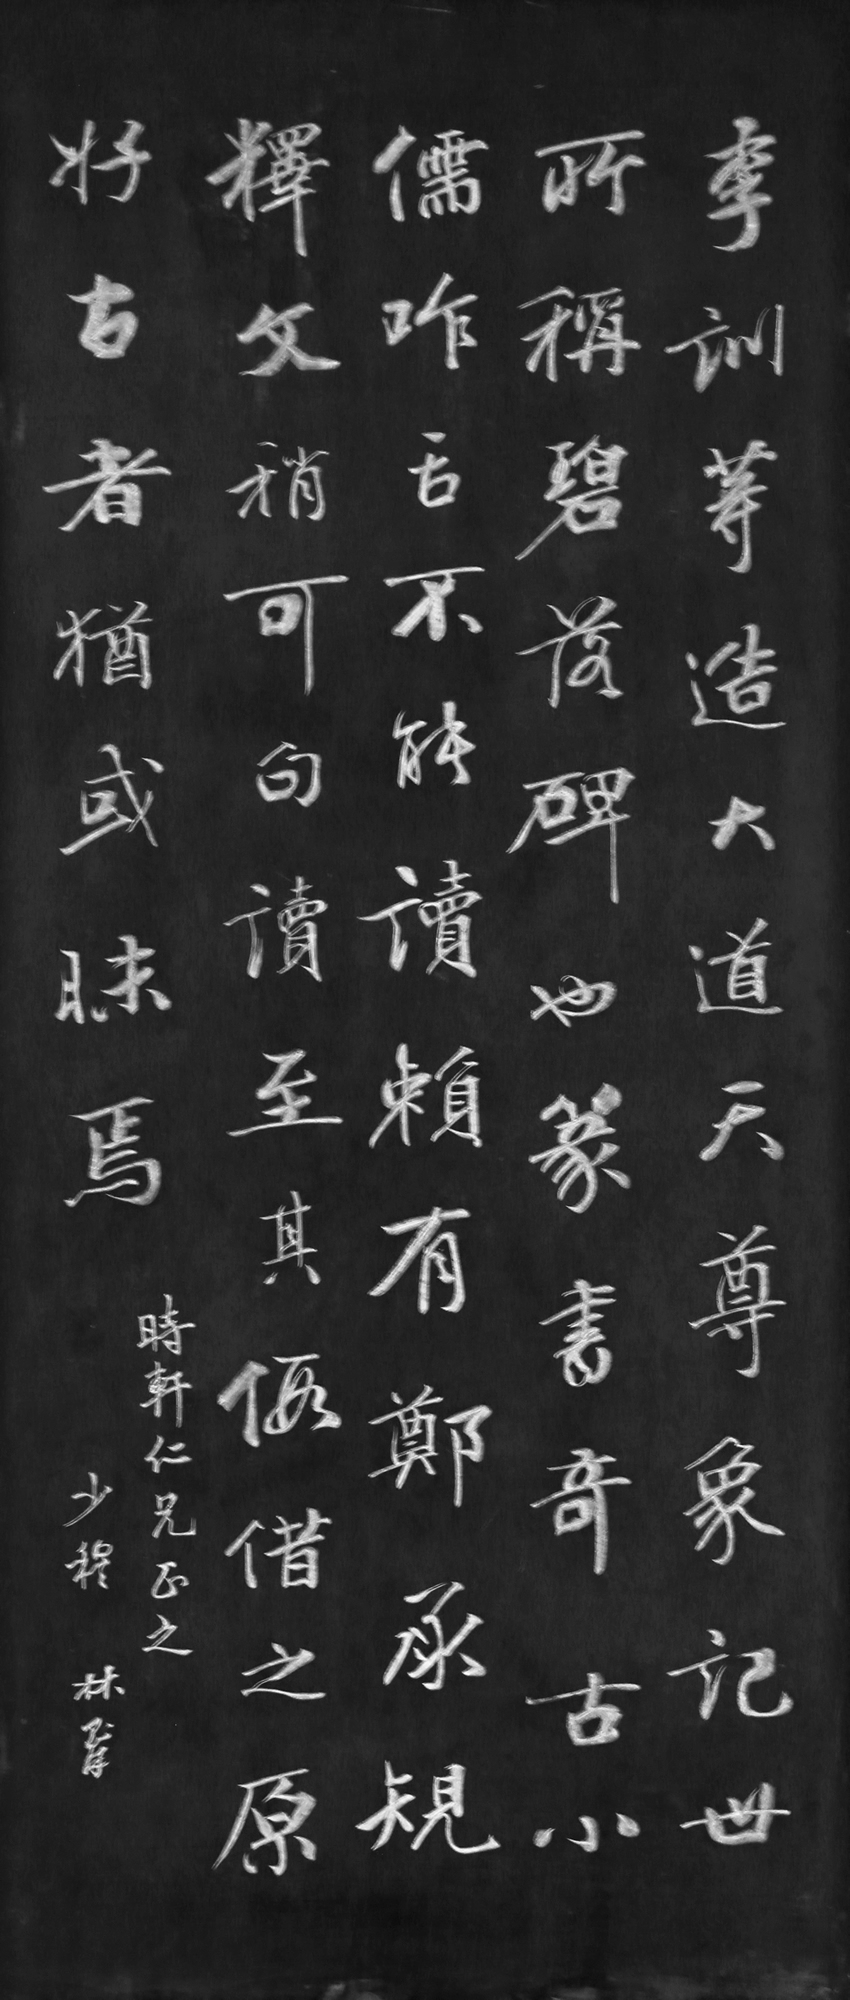 李訓等造大道天尊象記世
所稱碧落碑也篆書奇古小
儒咋舌不能讀賴有鄭承規
釋文稍可句讀至其假借之原
好古者猶或昧焉
時軒仁兄正之
少穆 林